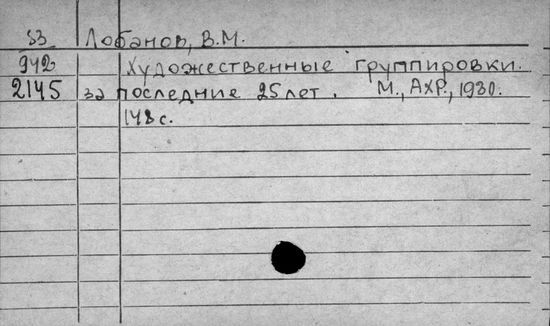 53 Лобанов, В.М.
942 Художественные группировки.
2145 за последние 25 лет. М., АХР., 1930.
148 с.